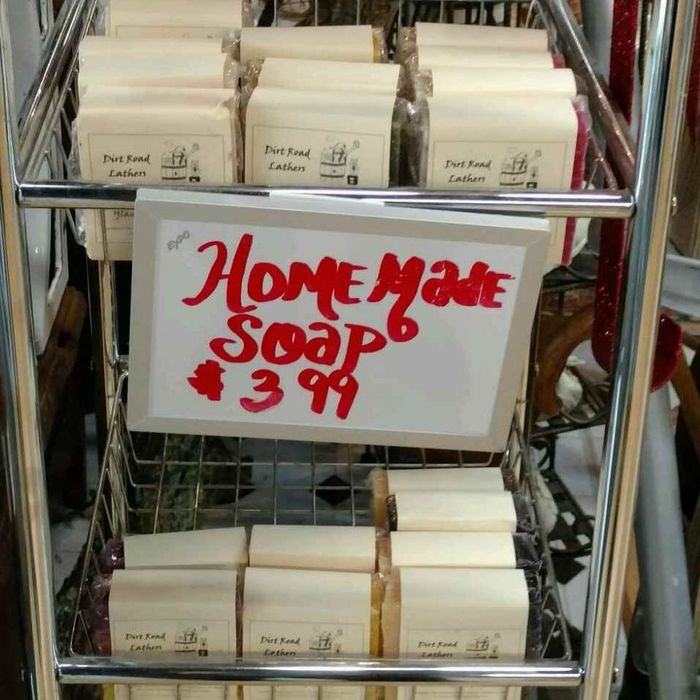 Dirt Road
Lathers
Dirt Road
Lathers
Dirt Road
Lathers
EXPO
HOMEMaDE
SOaP
$ 3 99
Dirt Road
Lathers
Dirt Road
Lathers
Dirt Road
Lathers